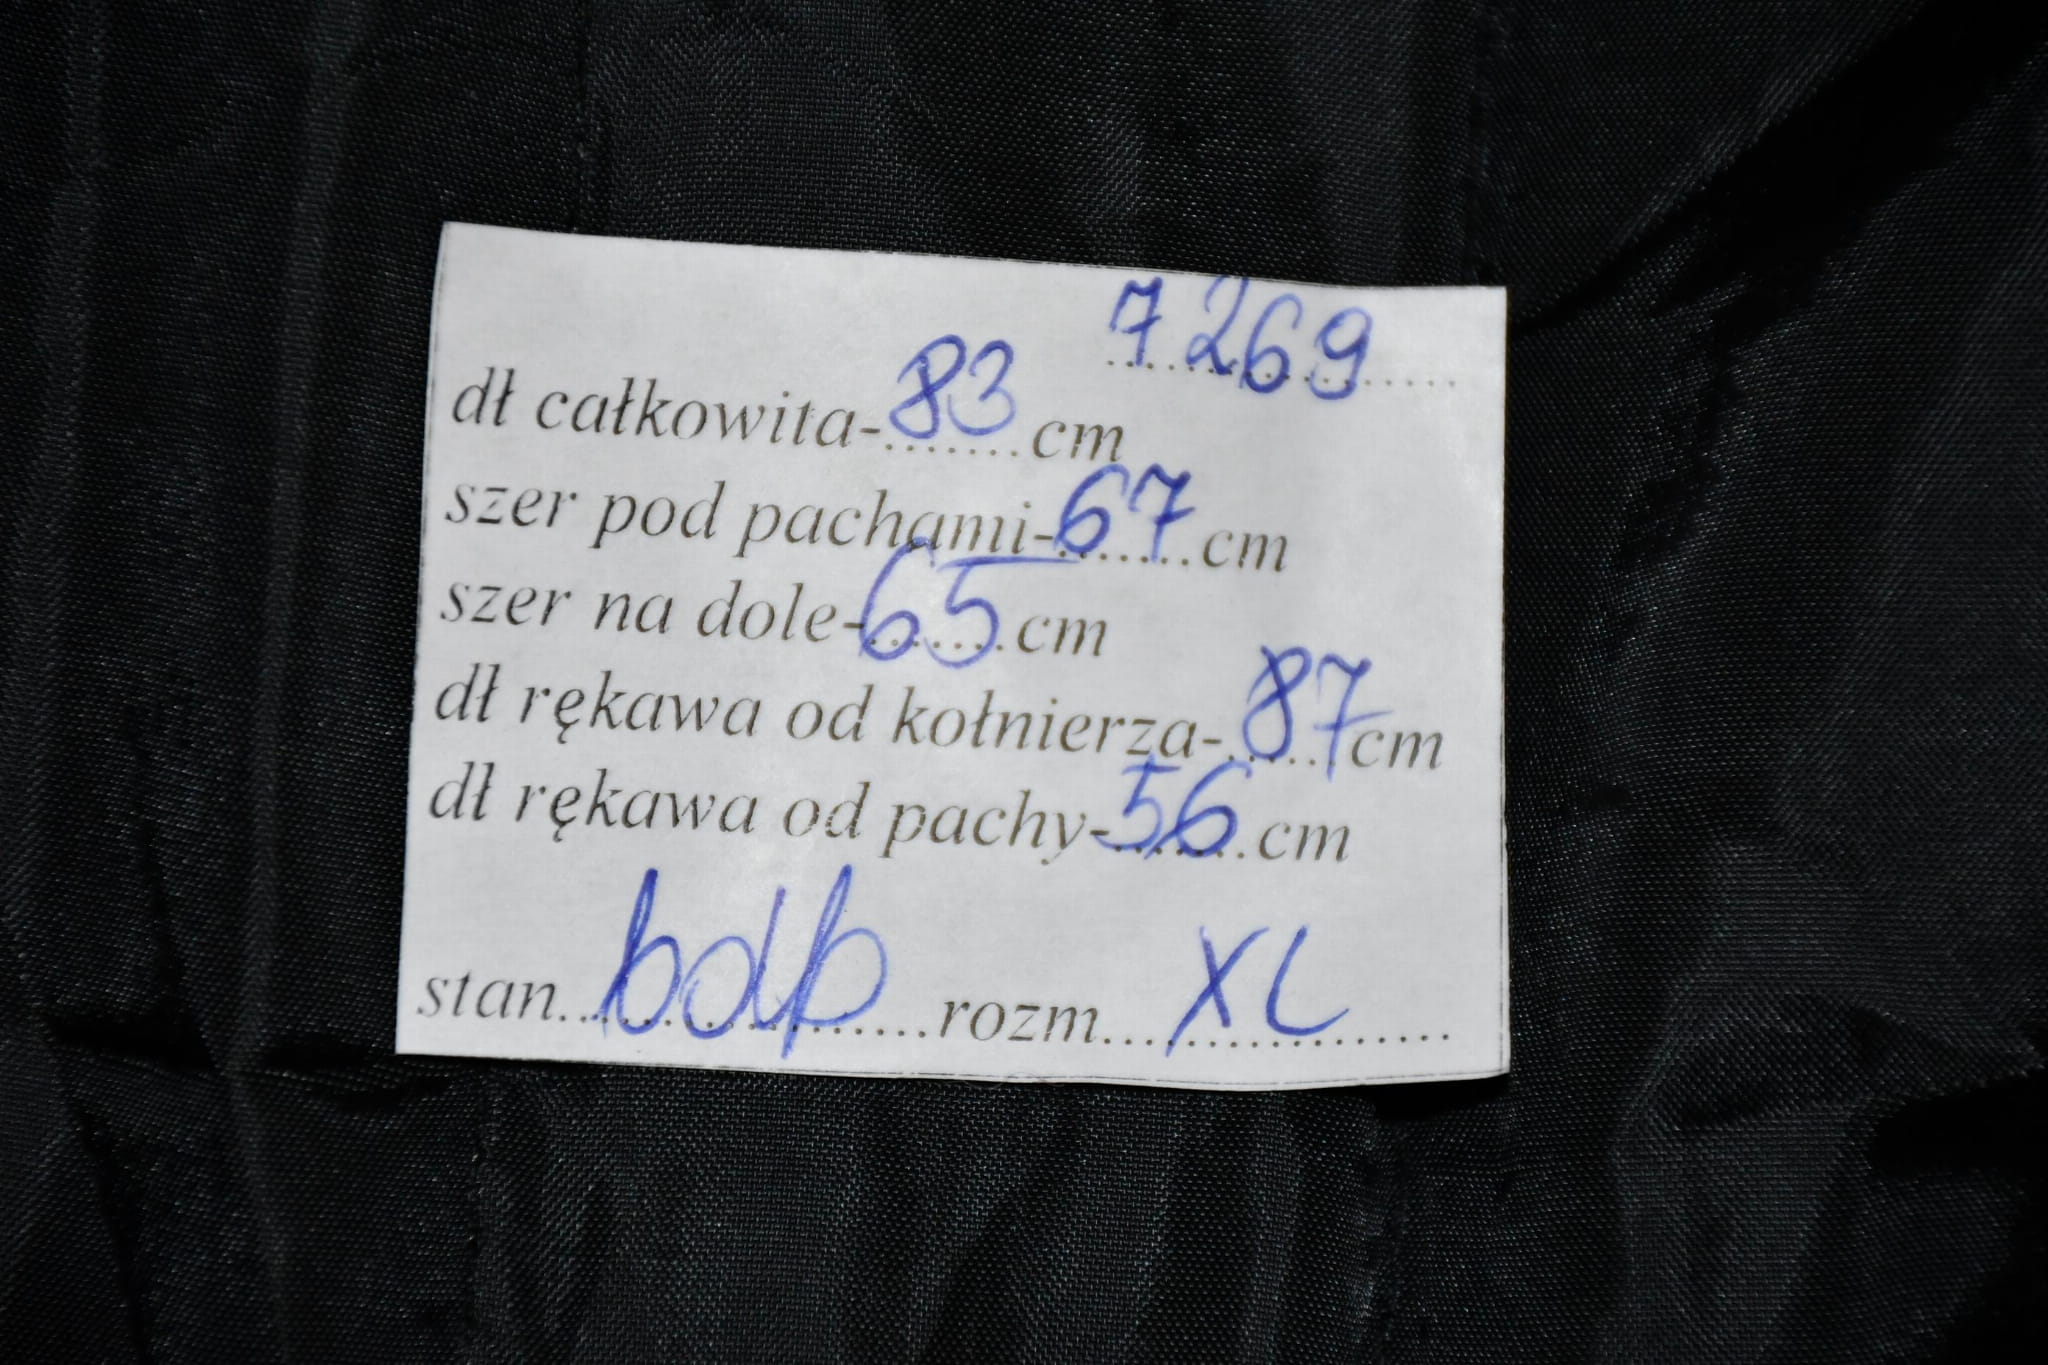 7269
dł całkowita-83 cm
szer pod pachami-67 cm
szer na dole-65 cm
dł rękawa od kołnierza-87 cm
dł rękawa od pachy-56 cm
stan bdb rozm XL